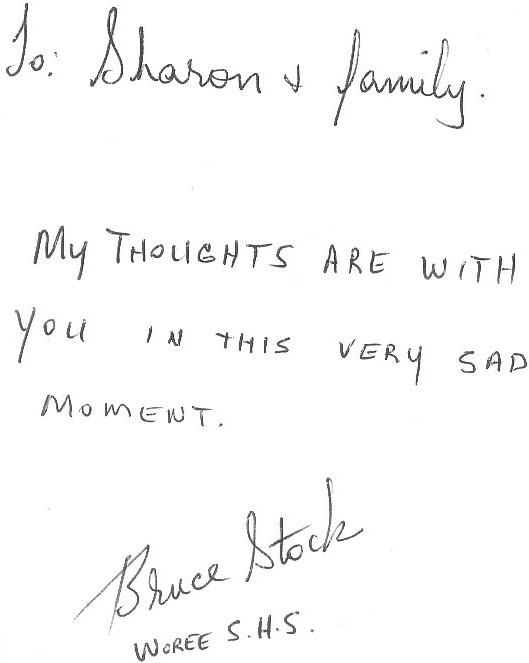 To: Sharon & family.
My THOUGHTS ARE WITH
YOU IN THIS VERY SAD
MOMENT.
Bruce Stock
WOREE S.H.S.